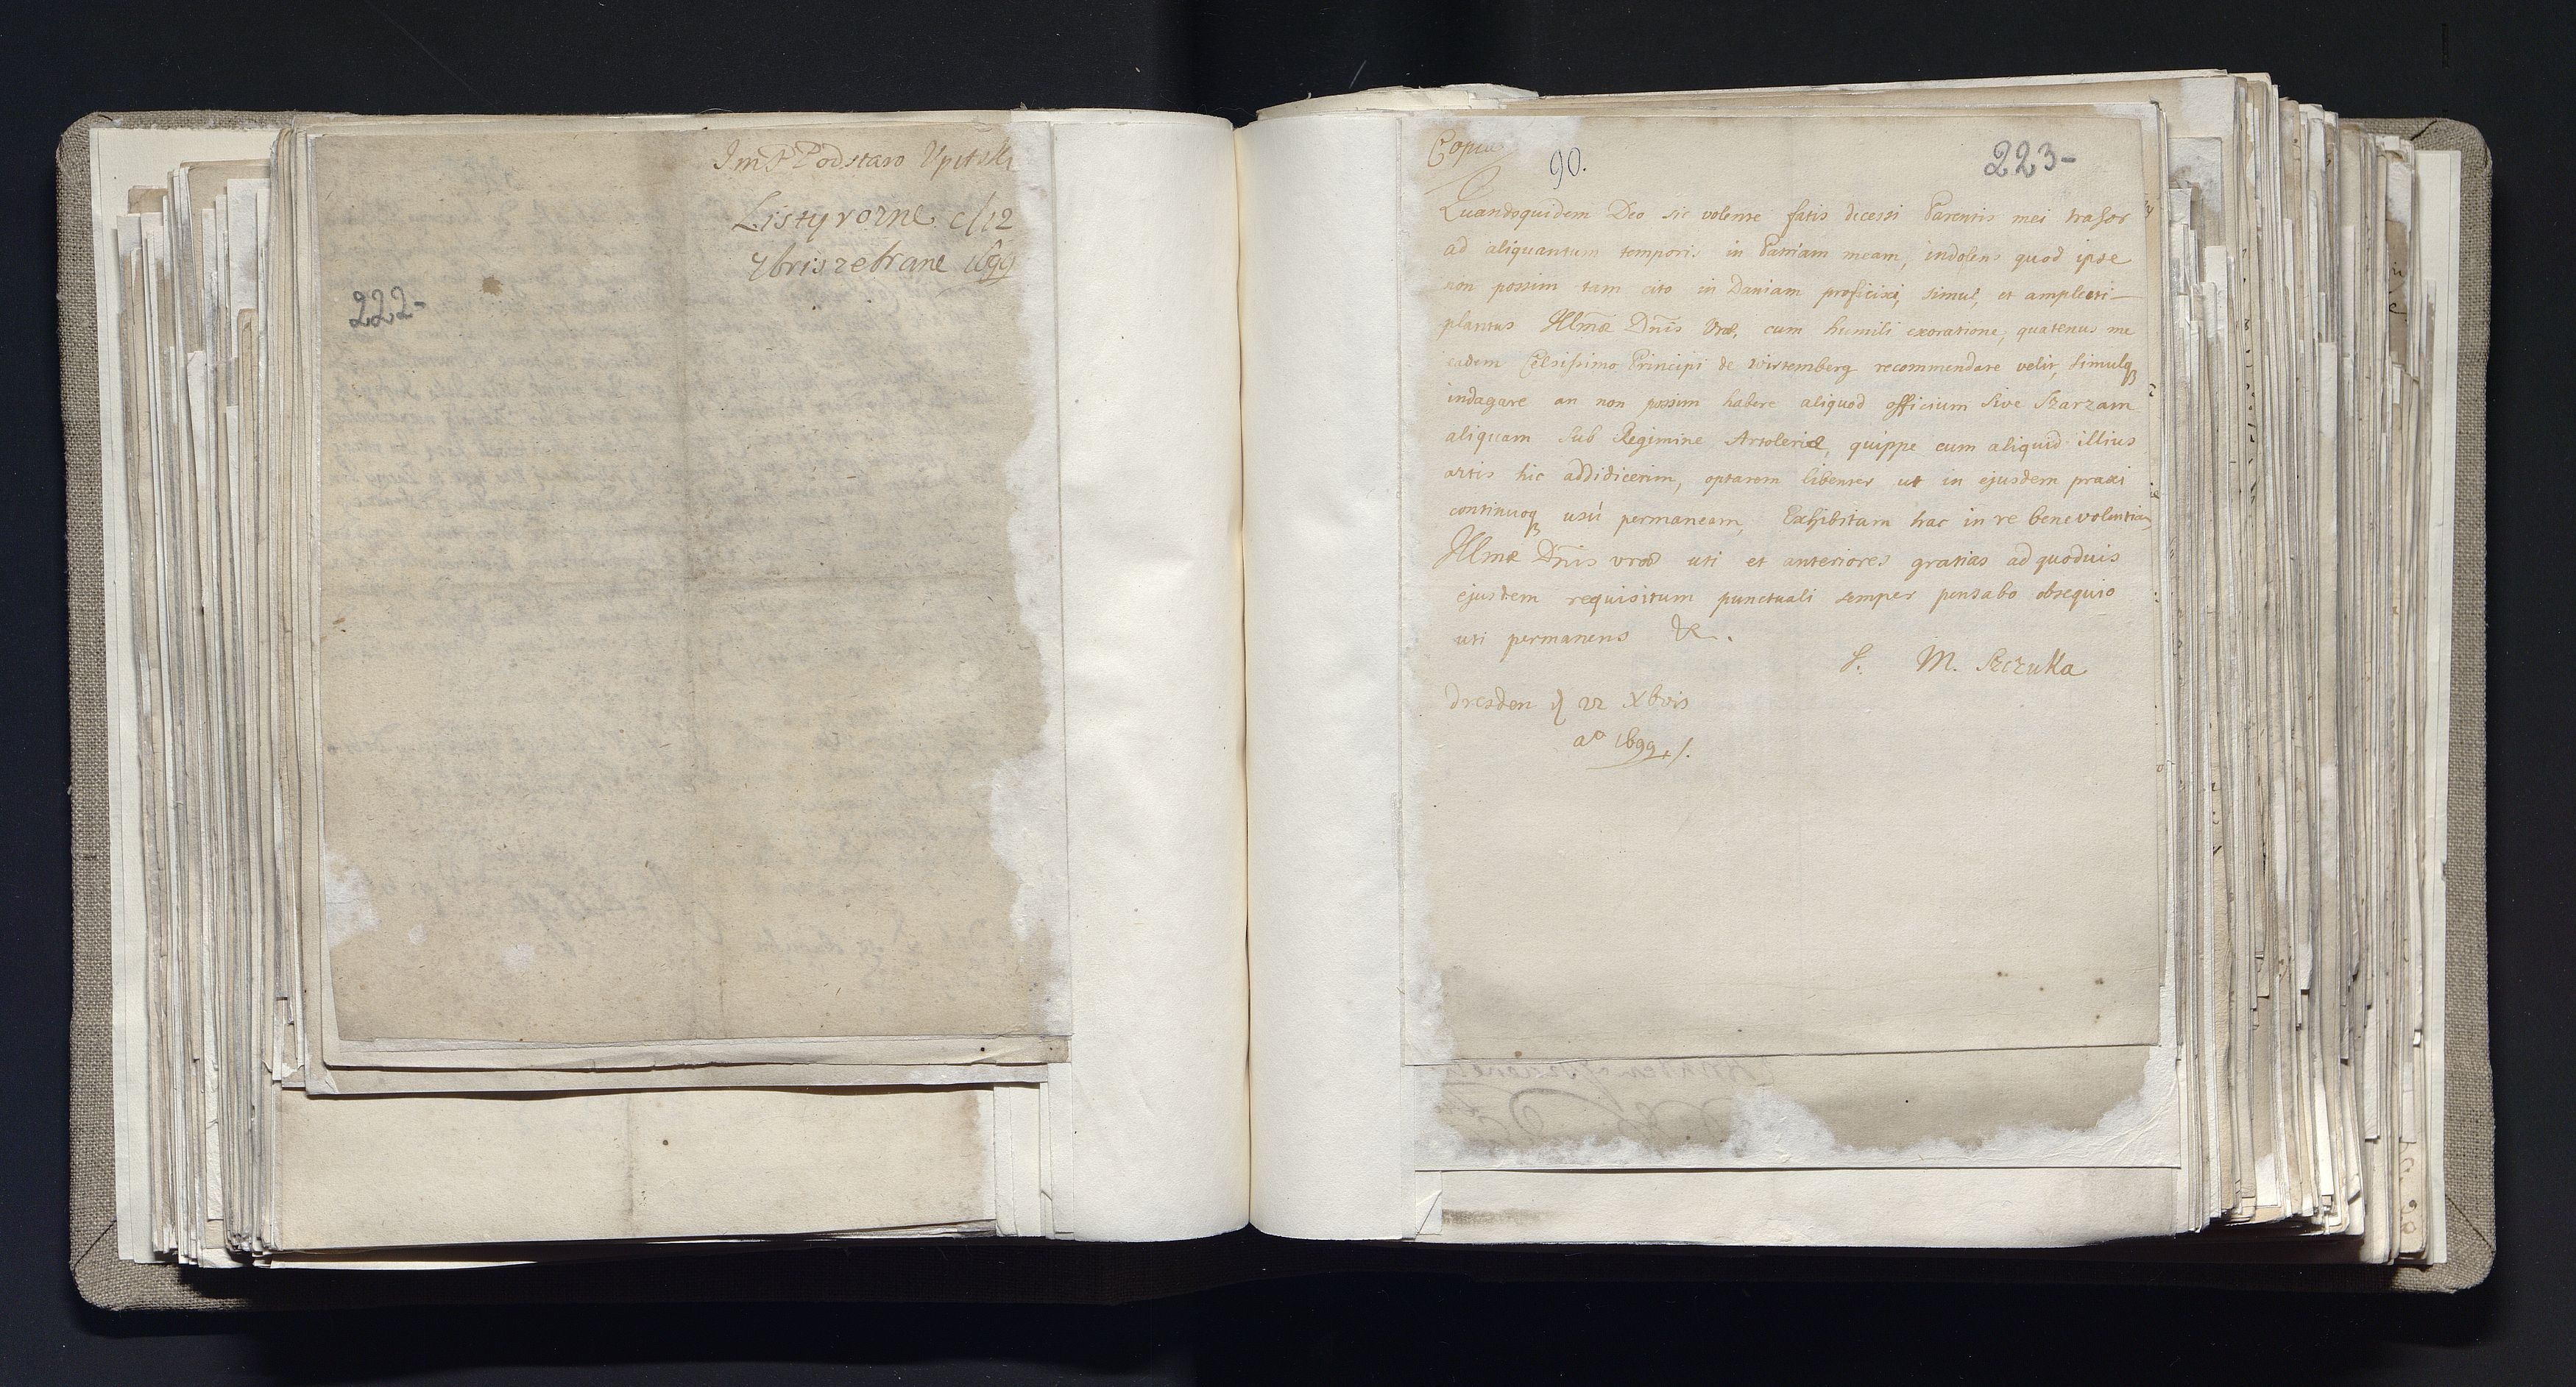 Im P Podstaro Upitski
Listy rozne c/12
7bris zebrane 1699
222-
Copia
90.
223-
Quandoquidem Deo sic volente fatis decessi Parentis mei trahor
ad aliquantum temporis in Patriam meam, indolens quod ipse
non possim tam cito in Daniam proficisci, simul, et amplecti
plantas Illmæ Dnis Vræ, cum humili exoratione, quatenus me
eadem Celsissimo Principi de Wirtemberg recommendare velit, simulq3
indagare an non possim habere aliquod officium sive Szarzam
aliquam sub Regimine Artoleriæ, quippe cum aliquid illius
artis hic addidicerim, optarem libenter ut in ejusdem praxi
continuoq3 usú permaneam, Exhibitam hac in re benevolentiam
Illmæ Dnis vræ uti et anteriores gratias ad quoduis
ejusdem requisitum punctuali semper pensabo obsequio
uti permanens &.
S. M. Szczuka
Dresden 22 Xbris
aº 1699